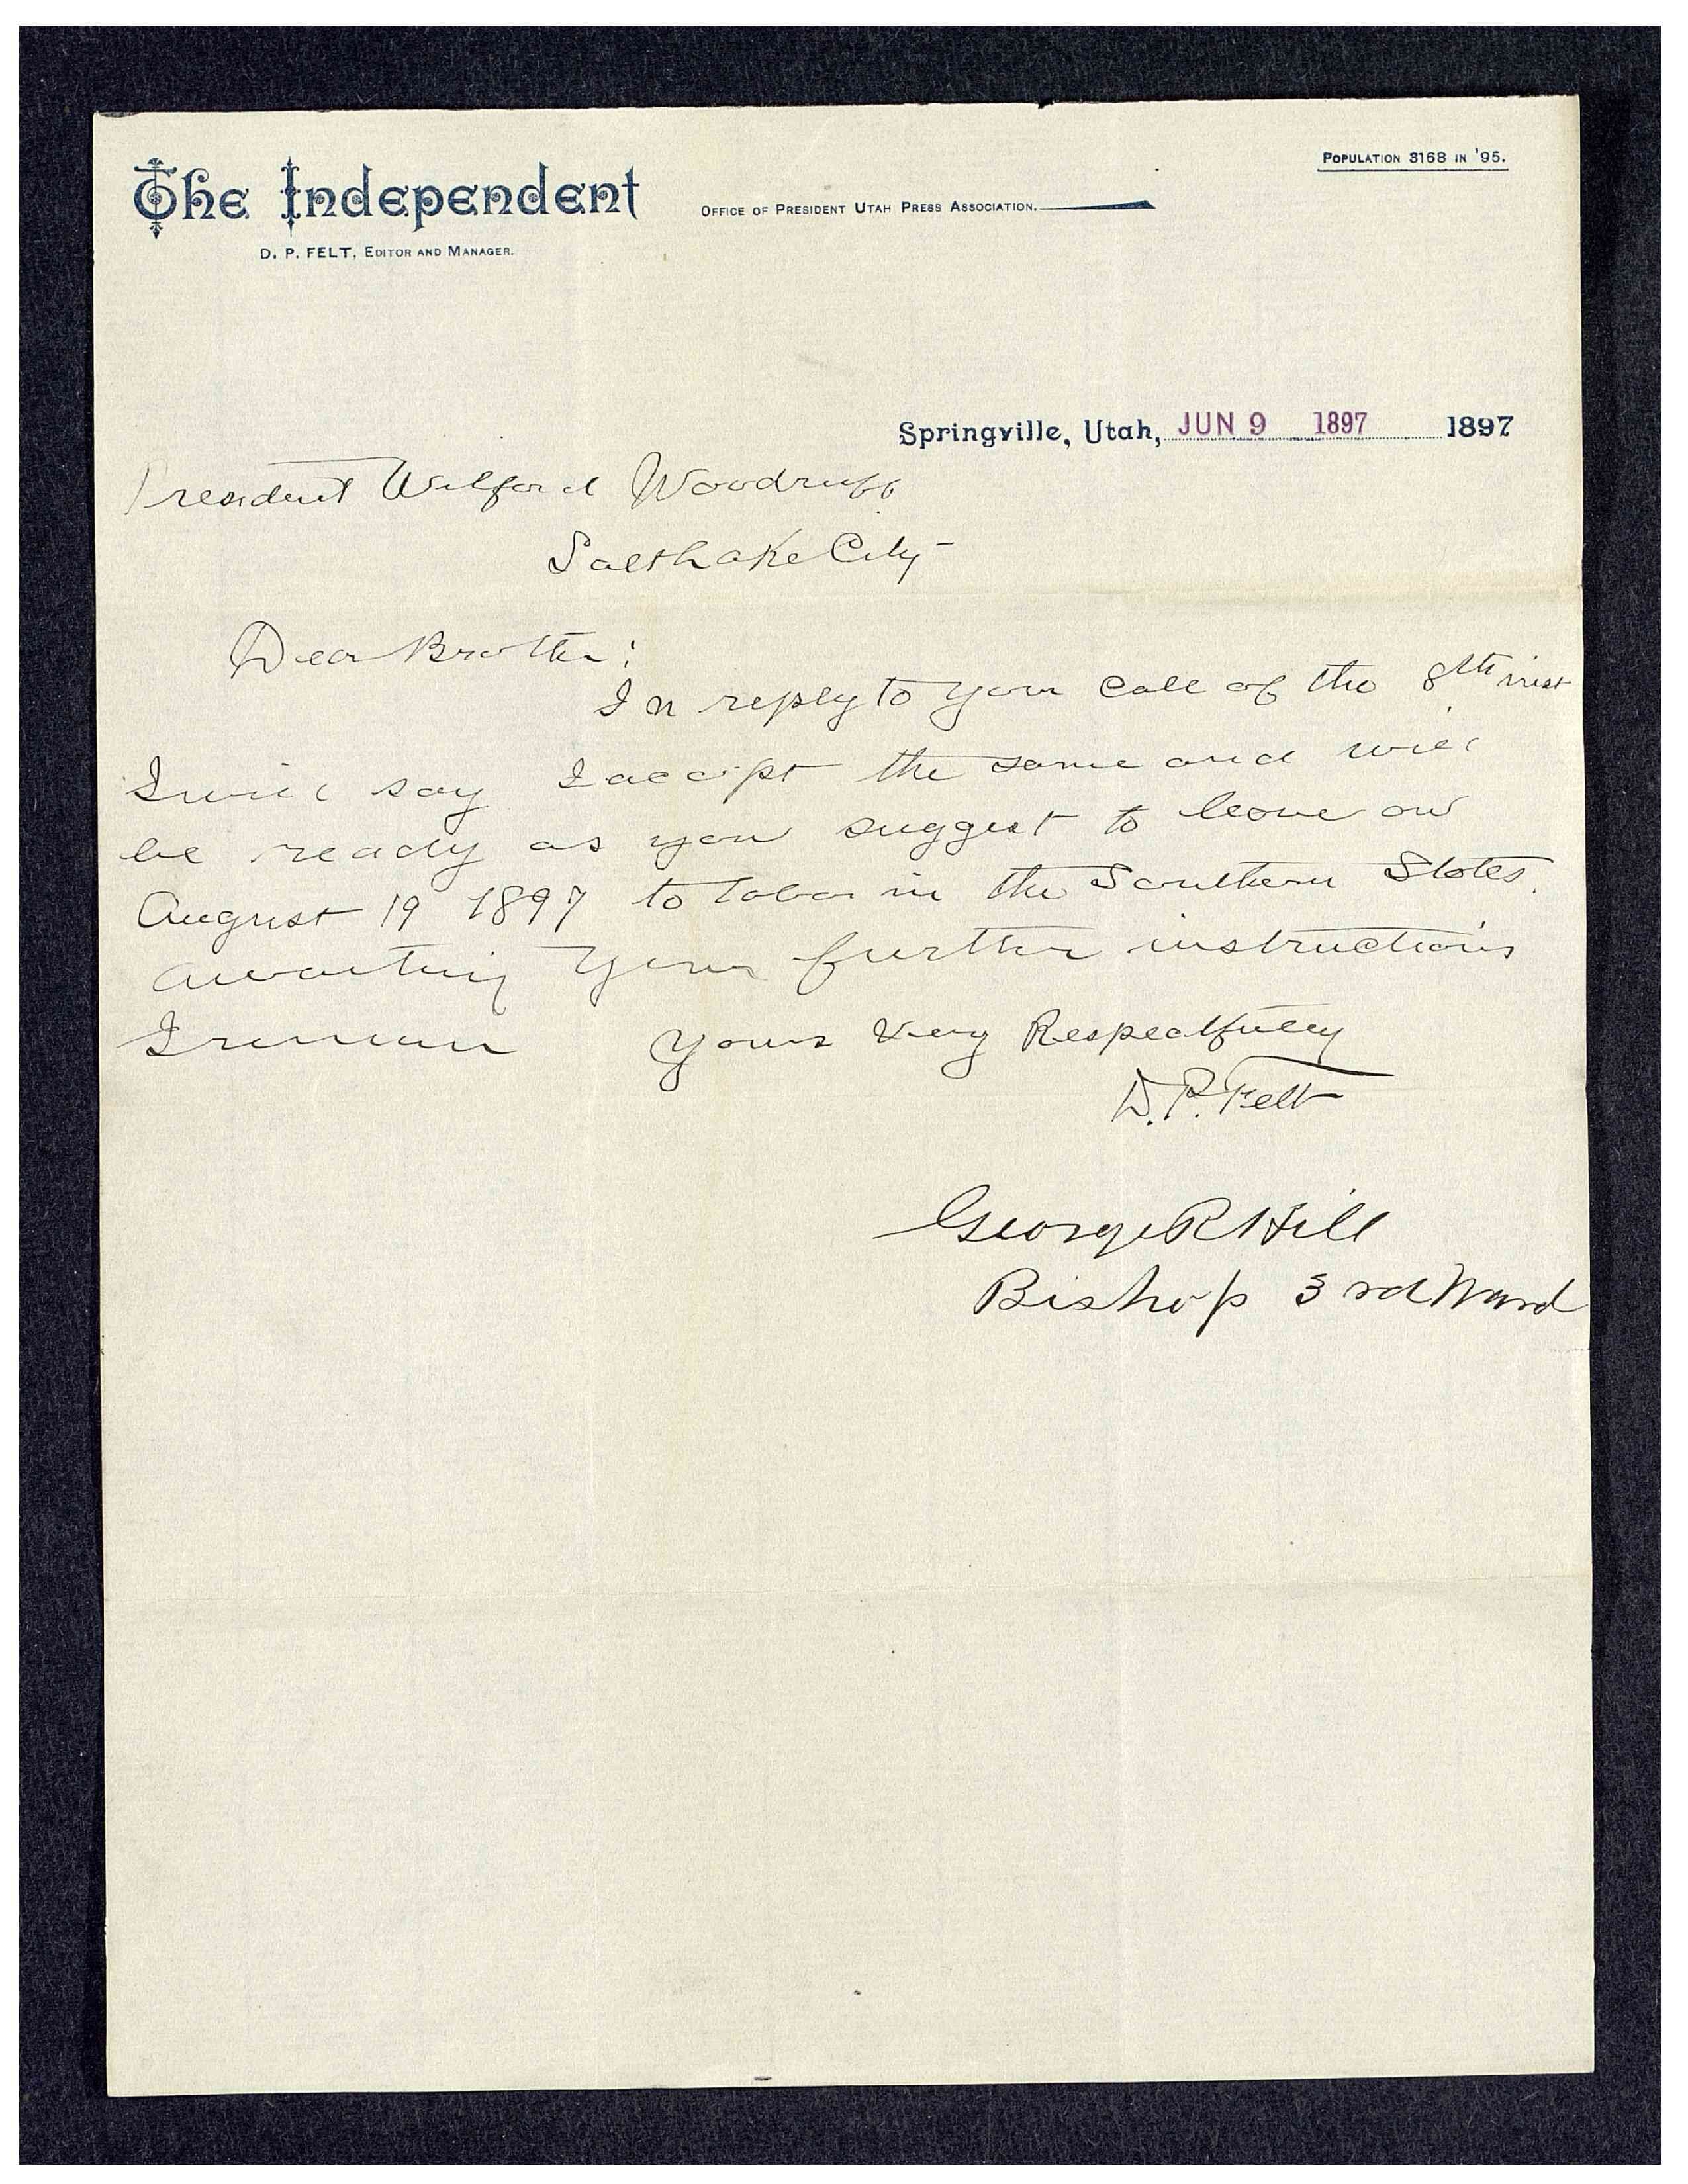 The Independent
D. P. FELT, EDITOR AND MANAGER.
OFFICE OF PRESIDENT UTAH PRESS ASSOCIATION.
POPULATION 3168 IN '95.
Springville, Utah, JUN 9 1897 1897
President Wilford Woodruff
Salt Lake City
Dear Brother:
In reply to your call of the 8th inst
I will say I accept the same and will
be ready as you suggest to leave on
August 19 1897 to labor in the Southern States.
Awaiting your further instructions
I remain Yours Very Respectfully
D. P. Felt
George R Hill
Bishop 3rd Ward